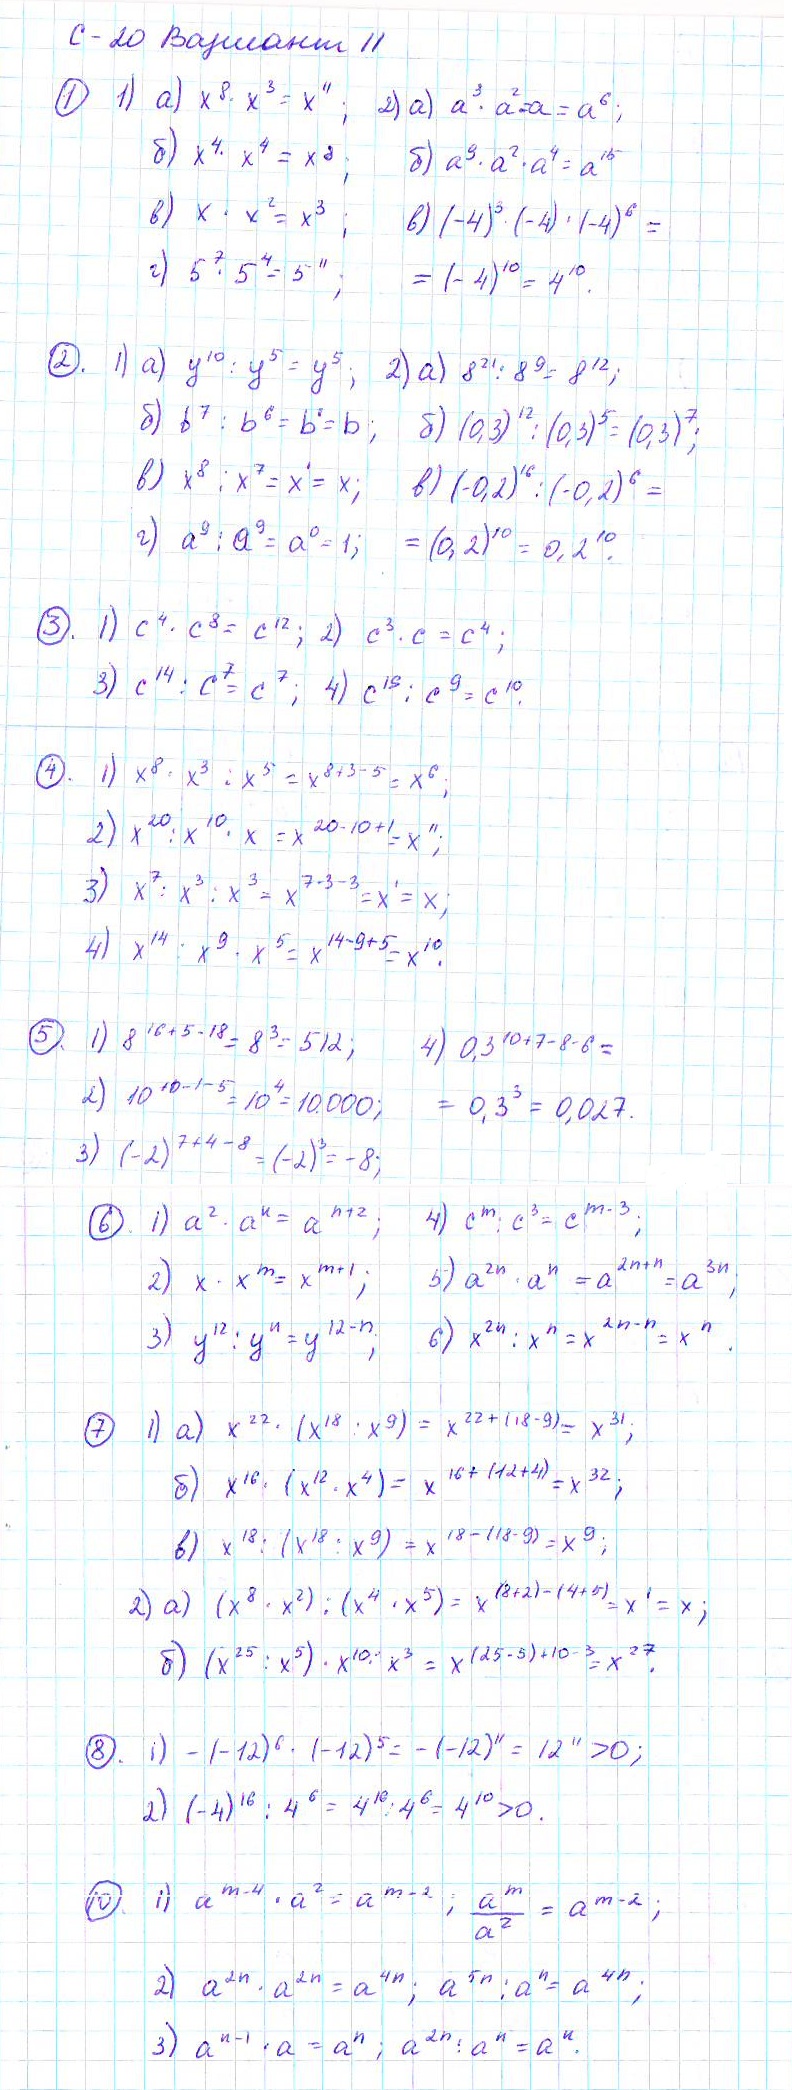 С-20 Вариант II
① 1) а) x⁸ · x³ = x¹¹; 2) а) a³ · a² · a = a⁶;
б) x⁴ · x⁴ = x⁸; б) a⁹ · a² · a⁴ = a¹⁵
в) x · x² = x³; в) (-4)³ · (-4) · (-4)⁶ =
г) 5⁷ · 5⁴ = 5¹¹; = (-4)¹⁰ = 4¹⁰.
②. 1) а) y¹⁰ : y⁵ = y⁵; 2) а) 8²¹ : 8⁹ = 8¹²;
б) b⁷ : b⁶ = b¹ = b; б) (0,3)¹² : (0,3)⁵ = (0,3)⁷;
в) x⁸ : x⁷ = x¹ = x; в) (-0,2)¹⁶ : (-0,2)⁶ =
г) a⁹ : a⁹ = a⁰ = 1; = (0,2)¹⁰ = 0,2¹⁰.
③. 1) c⁴ · c⁸ = c¹²; 2) c³ · c = c⁴;
3) c¹⁴ : c⁷ = c⁷; 4) c¹⁹ : c⁹ = c¹⁰.
④. 1) x⁸ · x³ : x⁵ = x⁸⁺³⁻⁵ = x⁶;
2) x²⁰ : x¹⁰ · x = x²⁰⁻¹⁰⁺¹ = x¹¹;
3) x⁷ : x³ : x³ = x⁷⁻³⁻³ = x¹ = x;
4) x¹⁴ : x⁹ · x⁵ = x¹⁴⁻⁹⁺⁵ = x¹⁰.
⑤. 1) 8¹⁶⁺⁵⁻¹⁸ = 8³ = 512; 4) 0,3¹⁰⁺⁷⁻⁸⁻⁶ =
2) 10¹⁰⁻¹⁻⁵ = 10⁴ = 10000; = 0,3³ = 0,027.
3) (-2)⁷⁺⁴⁻⁸ = (-2)³ = -8;
⑥. 1) a² · aⁿ = aⁿ⁺²; 4) cᵐ : c³ = cᵐ⁻³;
2) x · xᵐ = xᵐ⁺¹; 5) a²ⁿ · aⁿ = a²ⁿ⁺ⁿ = a³ⁿ;
3) y¹² : yⁿ = y¹²⁻ⁿ; 6) x²ⁿ : xⁿ = x²ⁿ⁻ⁿ = xⁿ.
⑦ 1) а) x²² · (x¹⁸ : x⁹) = x²²⁺⁽¹⁸⁻⁹⁾ = x³¹;
б) x¹⁶ · (x¹² · x⁴) = x¹⁶⁺⁽¹²⁺⁴⁾ = x³²;
в) x¹⁸ : (x¹⁸ : x⁹) = x¹⁸⁻⁽¹⁸⁻⁹⁾ = x⁹;
2) а) (x⁸ · x²) : (x⁴ · x⁵) = x⁽⁸⁺²⁾⁻⁽⁴⁺⁵⁾ = x¹ = x;
б) (x²⁵ : x⁵) · x¹⁰ : x³ = x⁽²⁵⁻⁵⁾⁺¹⁰⁻³ = x²⁷.
⑧. 1) -(-12)⁶ · (-12)⁵ = -(-12)¹¹ = 12¹¹ > 0;
2) (-4)¹⁶ : 4⁶ = 4¹⁶ : 4⁶ = 4¹⁰ > 0.
⑩. 1) aᵐ⁻⁴ · a² = aᵐ⁻²; aᵐ/a² = aᵐ⁻²;
2) a²ⁿ · a²ⁿ = a⁴ⁿ; a⁵ⁿ : aⁿ = a⁴ⁿ;
3) aⁿ⁻¹ · a = aⁿ; a²ⁿ : aⁿ = aⁿ.